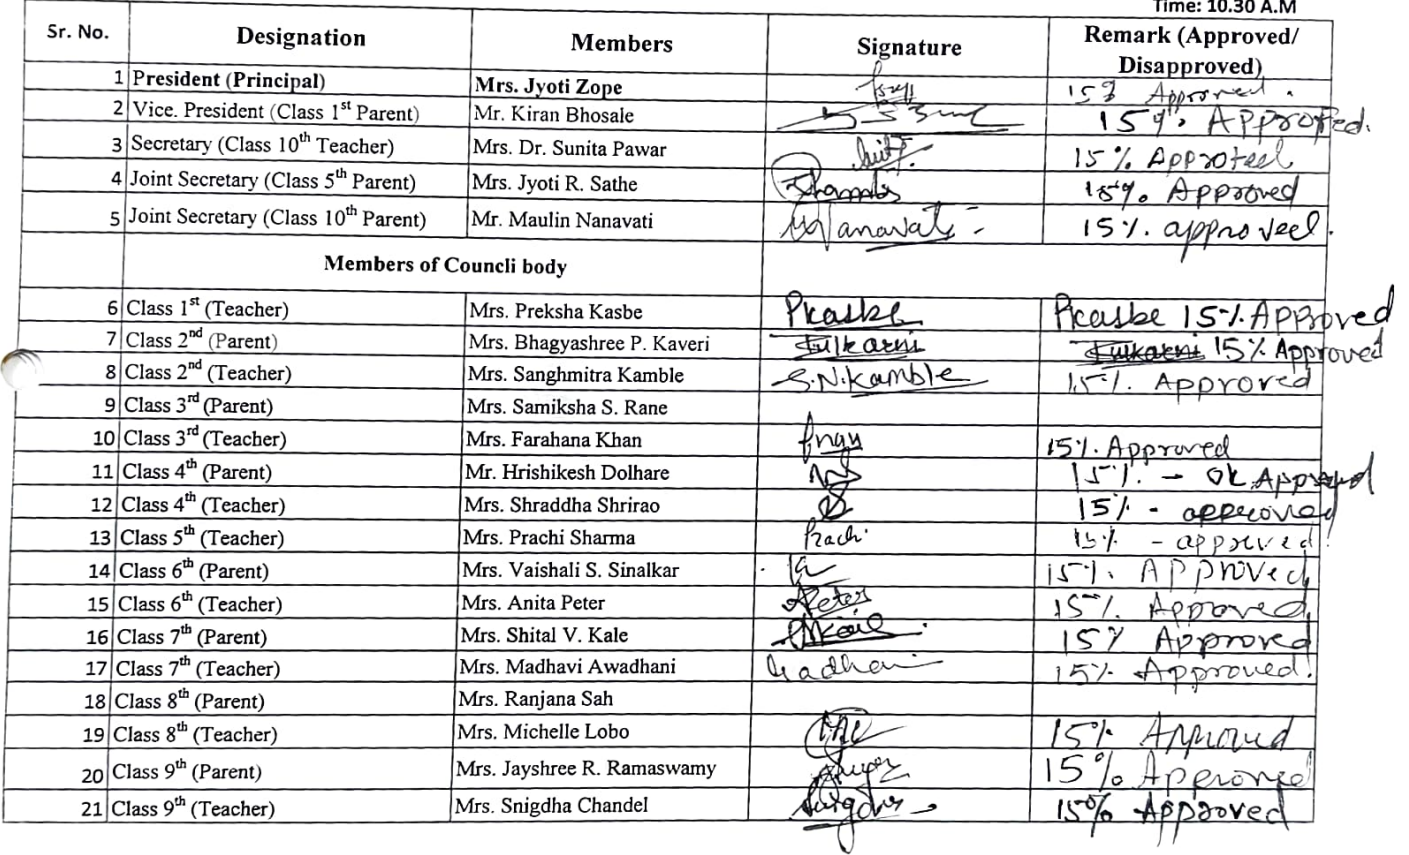 Time: 10.30 A.M
Sr. No. Designation Members Signature Remark (Approved/ Disapproved)
1 President (Principal) Mrs. Jyoti Zope 15% Approved.
2 Vice. President (Class 1st Parent) Mr. Kiran Bhosale 15% Approved.
3 Secretary (Class 10th Teacher) Mrs. Dr. Sunita Pawar 15% Approved
4 Joint Secretary (Class 5th Parent) Mrs. Jyoti R. Sathe 15% Approved
5 Joint Secretary (Class 10th Parent) Mr. Maulin Nanavati Nanavati 15% approved.
Members of Councli body
6 Class 1st (Teacher) Mrs. Preksha Kasbe Pkasbe Pkasbe 15% Approved
7 Class 2nd (Parent) Mrs. Bhagyashree P. Kaveri Kulkarni Kulkarni 15% Approved
8 Class 2nd (Teacher) Mrs. Sanghmitra Kamble S.N.Kamble 15% Approved
9 Class 3rd (Parent) Mrs. Samiksha S. Rane
10 Class 3rd (Teacher) Mrs. Farahana Khan 15% Approved
11 Class 4th (Parent) Mr. Hrishikesh Dolhare 15% - Ok Approved
12 Class 4th (Teacher) Mrs. Shraddha Shrirao 15% - approved
13 Class 5th (Teacher) Mrs. Prachi Sharma Prachi 15% - approved!
14 Class 6th (Parent) Mrs. Vaishali S. Sinalkar 15% Approved
15 Class 6th (Teacher) Mrs. Anita Peter APeter 15% Approved
16 Class 7th (Parent) Mrs. Shital V. Kale 15% Approved
17 Class 7th (Teacher) Mrs. Madhavi Awadhani 15% Approved.
18 Class 8th (Parent) Mrs. Ranjana Sah
19 Class 8th (Teacher) Mrs. Michelle Lobo 15% Approved
20 Class 9th (Parent) Mrs. Jayshree R. Ramaswamy 15% Approved
21 Class 9th (Teacher) Mrs. Snigdha Chandel 15% Approved